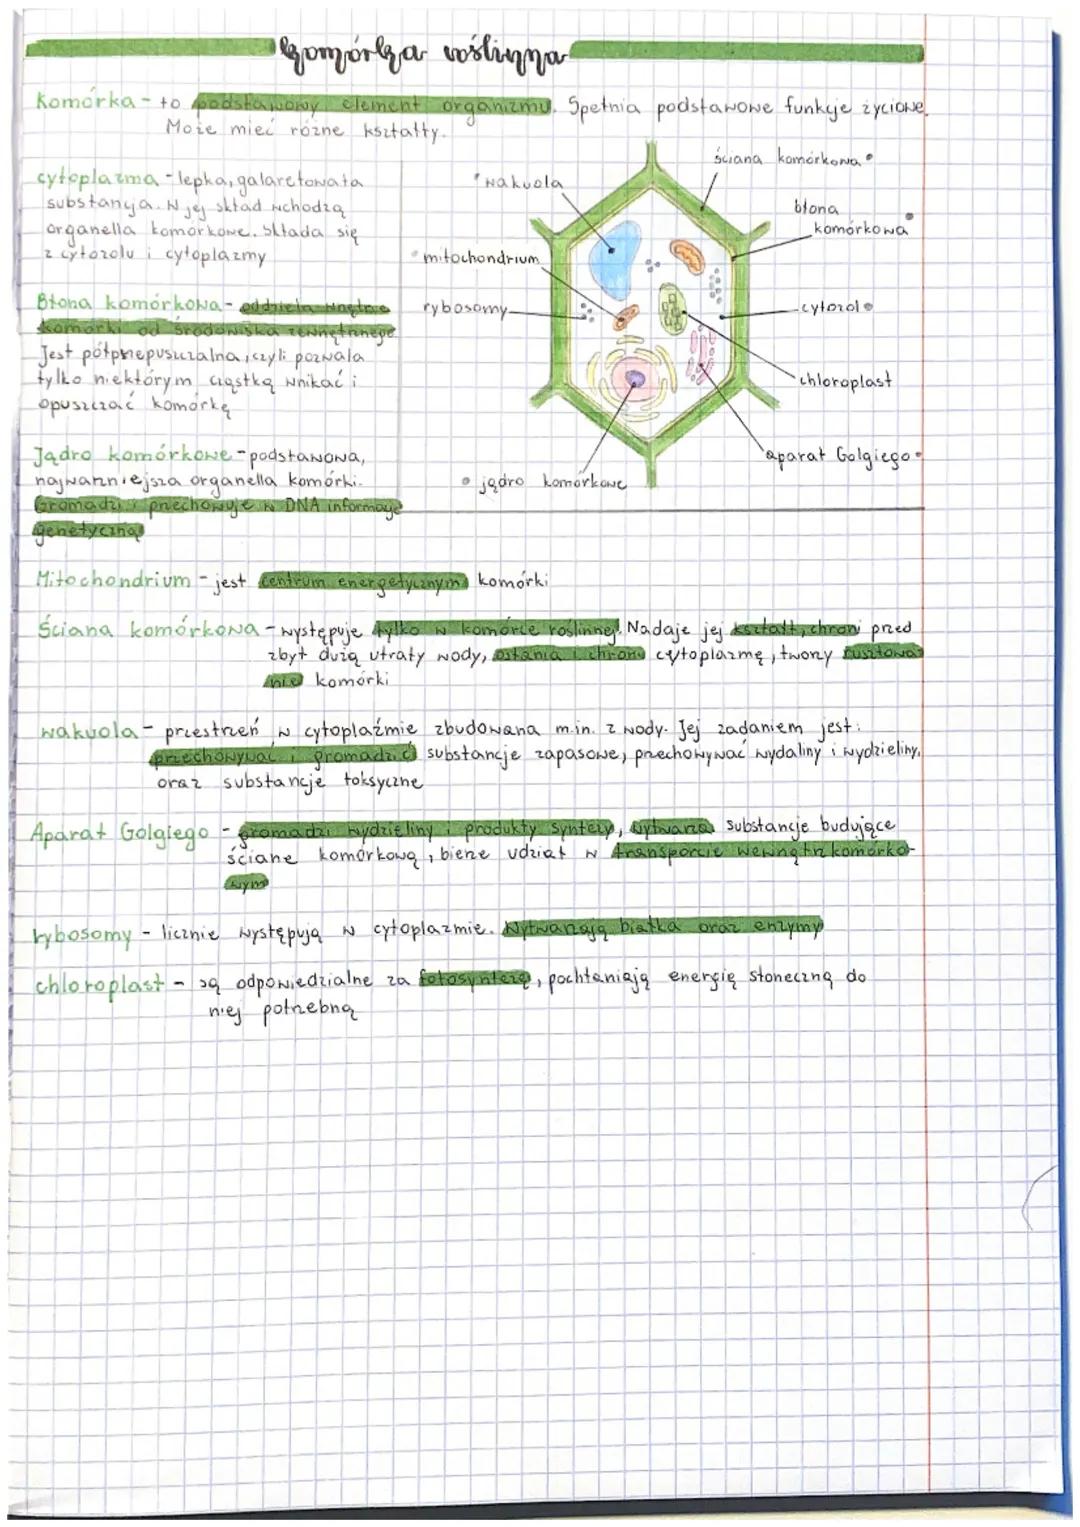 komórka roślinna
Komórka - to podstawowy element organizmu. Spełnia podstawowe funkcje życiowe.
Może mieć różne kształty.
cytoplazma - lepka, galaretowata
substancja. W jej skład wchodzą
organella komórkowe. Składa się
z cytozolu i cytoplazmy
Błona komórkowa - oddziela wnętrze
komórki od środowiska zewnętrznego
Jest półprzepuszczalna, czyli pozwala
tylko niektórym cząstką wnikać i
opuszczać komórkę
Jądro komórkowe - podstawowa,
najważniejsza organella komórki.
Gromadzi i przechowuje w DNA informacje
genetyczną
ściana komórkowa
wakuola
błona
komórkowa
mitochondrium
rybosomy
cytozol
chloroplast
aparat Golgiego
jądro komórkowe
Mitochondrium - jest centrum energetycznym komórki
Ściana komórkowa - występuje tylko w komórce roślinnej. Nadaje jej kształt, chroni przed
zbyt dużą utraty wody, osłania i chroni cytoplazmę, tworzy rusztowa
nie komórki
wakuola - przestrzeń w cytoplaźmie zbudowana m.in. z wody. Jej zadaniem jest:
przechowywać i gromadzić substancje zapasowe, przechowywać wydaliny i wydzieliny,
oraz substancje toksyczne
Aparat Golgiego - gromadzi wydzieliny i produkty syntezy, wytwarza substancje budujące
ściane komórkową, bierze udział w transporcie wewnątrzkomórko-
wym
rybosomy - licznie występują w cytoplazmie. Wytwarzają białka oraz enzymy
chloroplast - są odpowiedzialne za fotosyntezę, pochłaniają energię słoneczną do
niej potrzebną